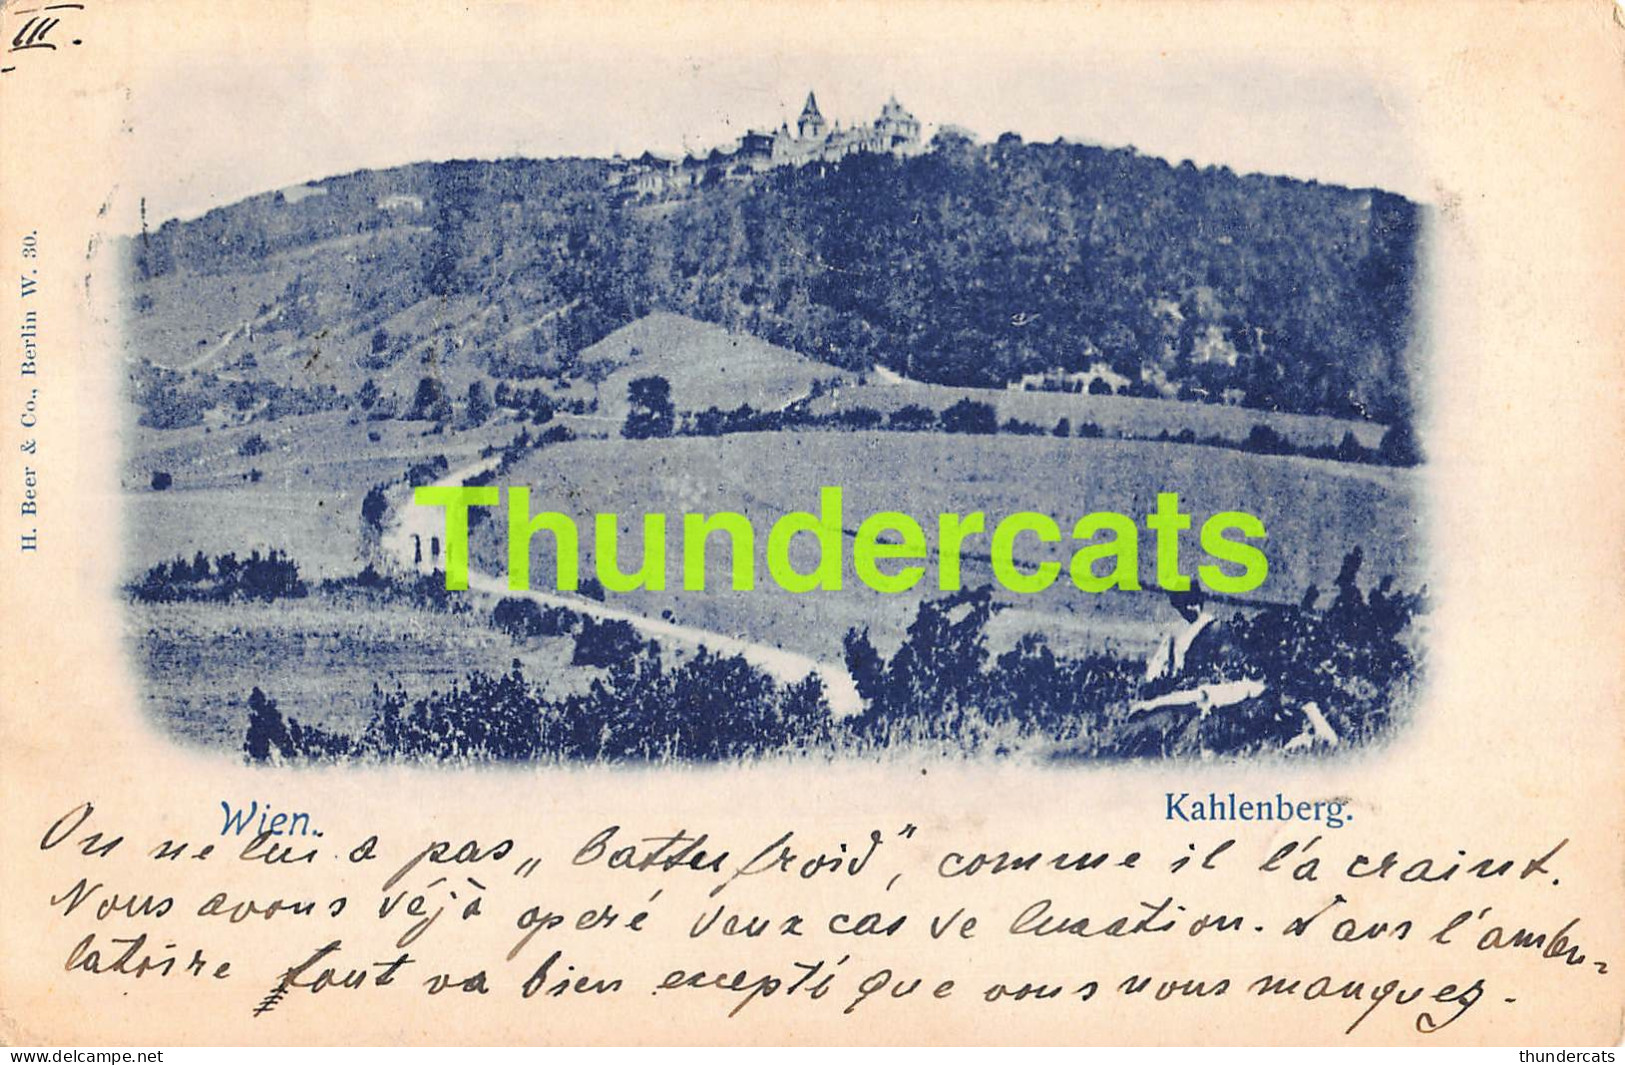 III.
H. Beer & Co., Berlin W. 30.
Thundercats
Wien.
Kahlenberg.
On ne lui a pas „battu froid", comme il l'a craint.
Nous avons déjà operé deux cas de luxation. Dans l'ambu-
latoire tout va bien excepté que vous nous manquez.
www.delcampe.net
thundercats